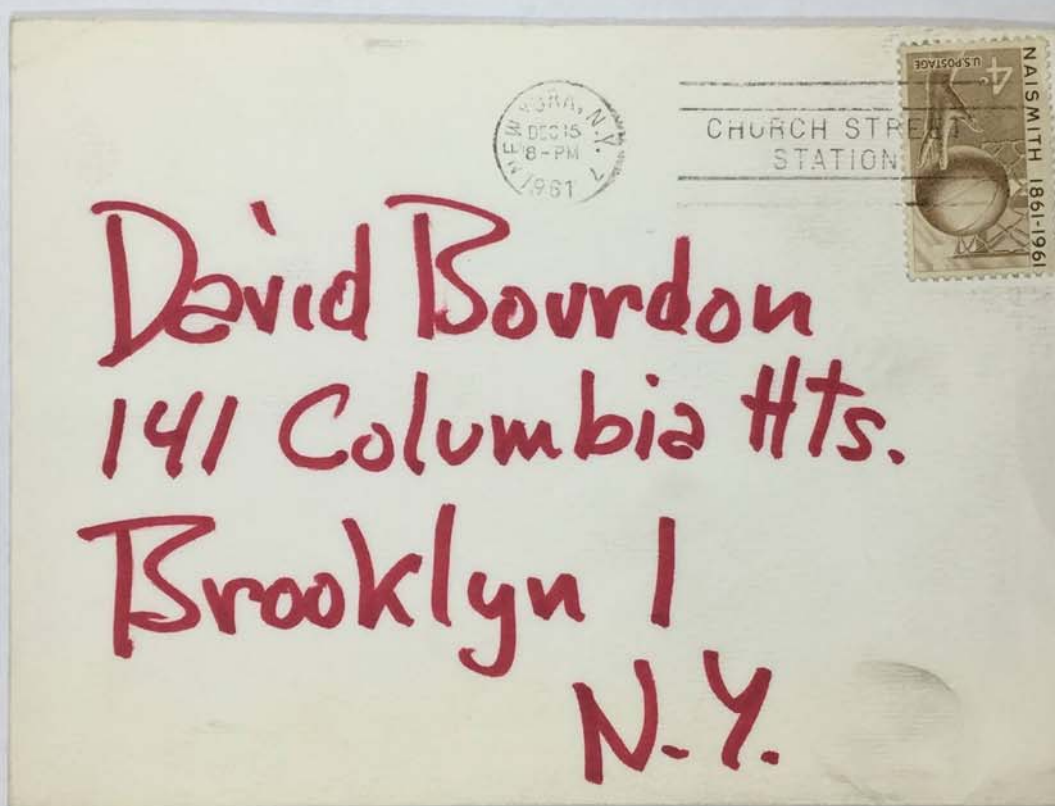 NEW YORK, N.Y. 7
DEC 15
8-PM
1961
CHURCH STREET
STATION
U.S. POSTAGE
4c
NAISMITH 1861-1961
David Bourdon
141 Columbia Hts.
Brooklyn 1
N.Y.